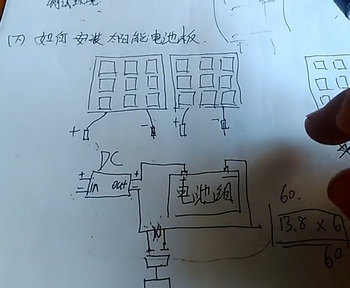 测试效果
(下) 如何安装太阳能电池板.
+ - + -
DC
+ in out +
电池组
60.
13.8 x 6
60